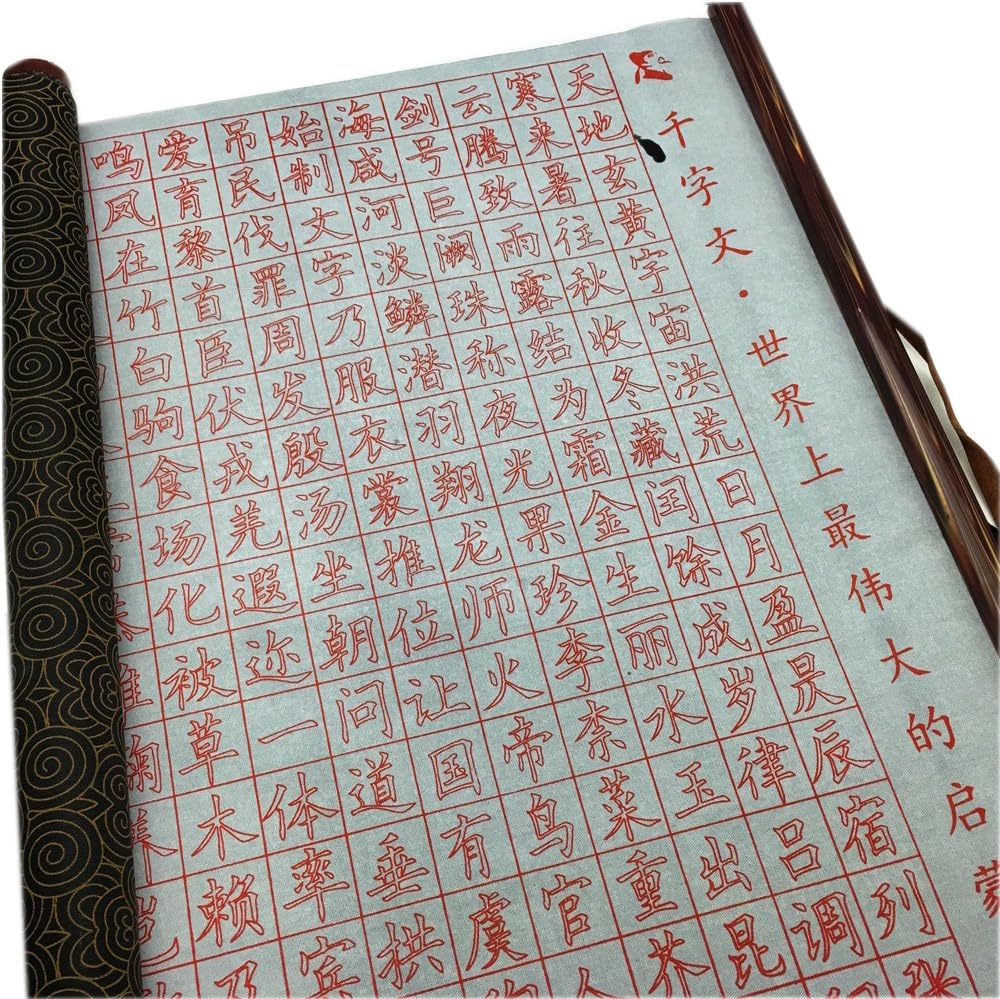 千字文·世界上最伟大的启蒙
天地玄黄宇宙洪荒日月盈昃辰宿列张
寒来暑往秋收冬藏闰馀成岁律吕调
云腾致雨露结为霜金生丽水玉出昆
剑号巨阙珠称夜光果珍李柰菜重芥
海咸河淡鳞潜羽翔龙师火帝鸟官人
始制文字乃服衣裳推位让国有虞
吊民伐罪周发殷汤坐朝问道垂拱
爱育黎首臣伏戎羌遐迩一体率宾
鸣凤在竹白驹食场化被草木赖及